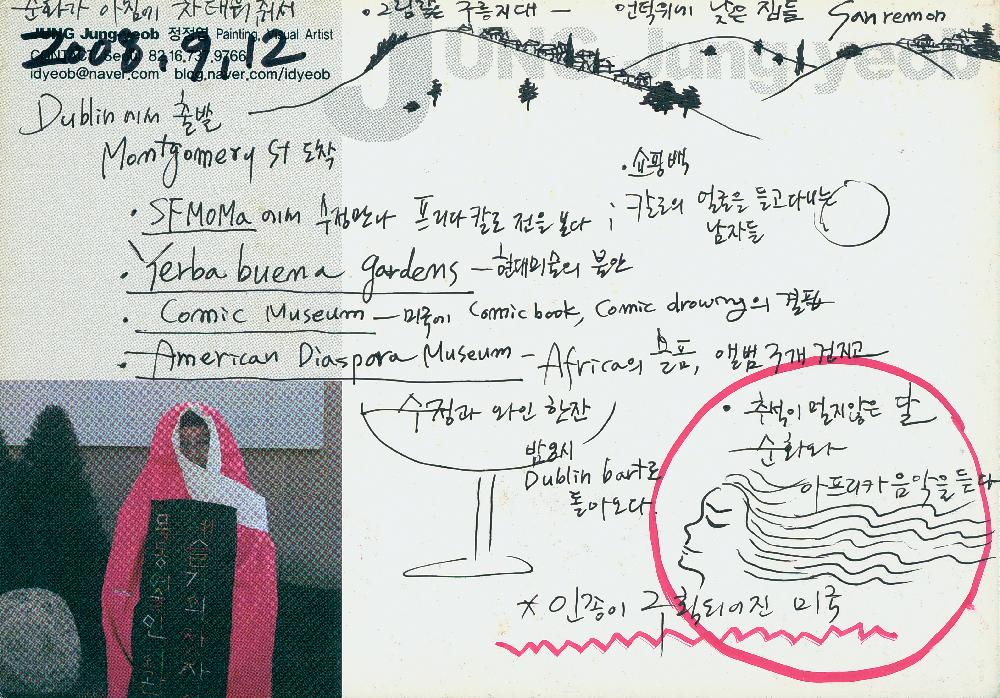 순화가 아침에 차태워줘서
· 그림같은 구릉지대 — 언덕위에 낮은 집들 San remon
JUNG Jung-yeob
JUNG Jung-yeob 정정엽 Painting, Visual Artist
2008. 9. 12
idyeob@naver.com blog.naver.com/idyeob
Dublin에서 출발
Montgomery St 도착
· SFMoMa에서 수정만나 프리다 칼로 전을 보다 ;
· 쇼핑백
칼로의 얼굴을 들고다니는
남자들
· Yerba buena gardens — 현대미술의 불안
· Comic Museum — 미국에 Comic book, Comic drowing의 결핍
· American Diaspora Museum — Africa의 분포, 앨범 3개 건지고
수정과 와인 한잔
밤 8시
Dublin bart로
돌아오다.
· 추석이 멀지않은 달
순화와
아프리카 음악을 듣다
* 인종이 그림되어진 미국